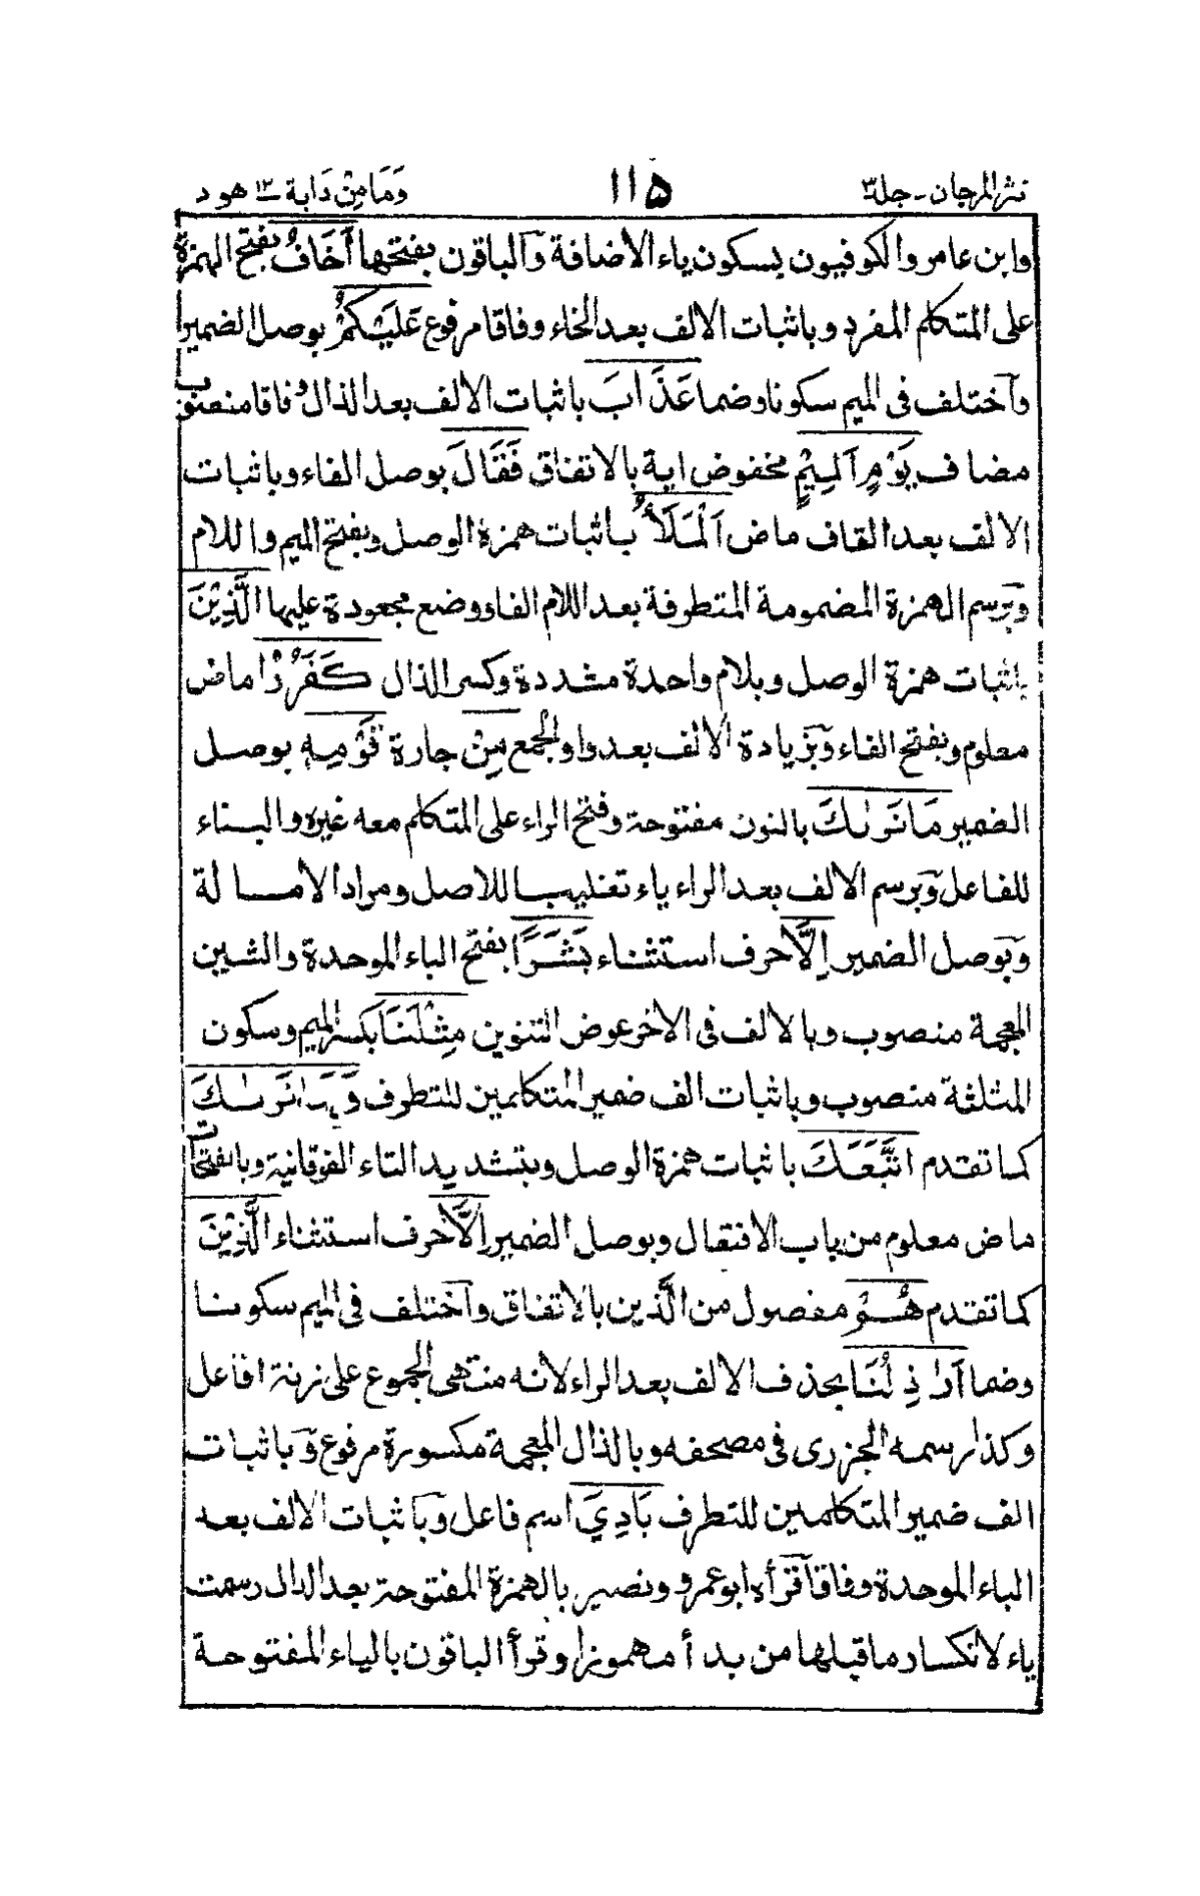 نثر المرجان - جلد ٣ ١١٥ وَمَا مِنْ دَابة ١٢ هود
وابن عامر والكوفيون بسكون ياء الاضافة وَالباقون بفتحها اَخَافُ بفتح الهمزة
على المتكلم المفرد وباثبات الالف بعد الخاء وفاقا مرفوع عَلَيْكُمْ بوصل الضمير
وَاختلف فى الميم سكونا وضما عَذَابَ باثبات الالف بعد الذال وفاقا منصوب
مضاف يَوْمٍ اَلِيْمٍ مخفوض اية بالاتفاق فَقَالَ بوصل الفاء وباثبات
الالف بعد القاف ماض اَلْمَلَأُ باثبات همزة الوصل وبفتح الميم واللام
وَبرسم الهمزة المضمومة المتطرفة بعد اللام الفا ووضع مجعودة عليها الَّذِيْنَ
باثبات همزة الوصل وبلام واحدة مشددة وكسر الذال كَفَرُوْا ماض
معلوم وبفتح الفاء وَبزيادة الالف بعد واو الجمع مِنْ جارة قَوْمِهٖ بوصل
الضمير مَا نَرٰىكَ بالنون مفتوحة وفتح الراء على المتكلم معه غيره والبناء
للفاعل وَبرسم الالف بعد الراء ياء تغليبا للاصل ومراد الامالة
وَبوصل الضمير اِلَّا حرف استثناء بَشَرًا بفتح الباء الموحدة والشين
المعجمة منصوب وبالالف فى الاخر عوض التنوين مِثْلَنَا بكسر الميم وسكون
المثلثة منصوب وباثبات الف ضمير المتكلمين للتطرف وَمَا نَرٰىكَ
كما تقدم اتَّبَعَكَ باثبات همزة الوصل وبتشديد التاء الفوقانية وبالفتحات
ماض معلوم من باب الافتعال وبوصل الضمير اِلَّا حرف استثناء الَّذِيْنَ
كما تقدم هُمْ مفصول من الَّذين بالاتفاق وَاختلف فى الميم سكونا
وضما اَرَاذِلُنَا بحذف الالف بعد الراء لانه منتهى الجموع على زنة افاعل
وكذا رسمه الجزرى فى مصحفه وبالذال المعجمة مكسورة مرفوع وَباثبات
الف ضمير المتكلمين للتطرف بَادِيَ اسم فاعل وَباثبات الالف بعد
الباء الموحدة وفاقا قرأه ابو عمرو ونصير بالهمزة المفتوحة بعد الدال رسمت
ياء لانكسار ما قبلها من بدأ مهموزا وقرأ الباقون بالياء المفتوحة